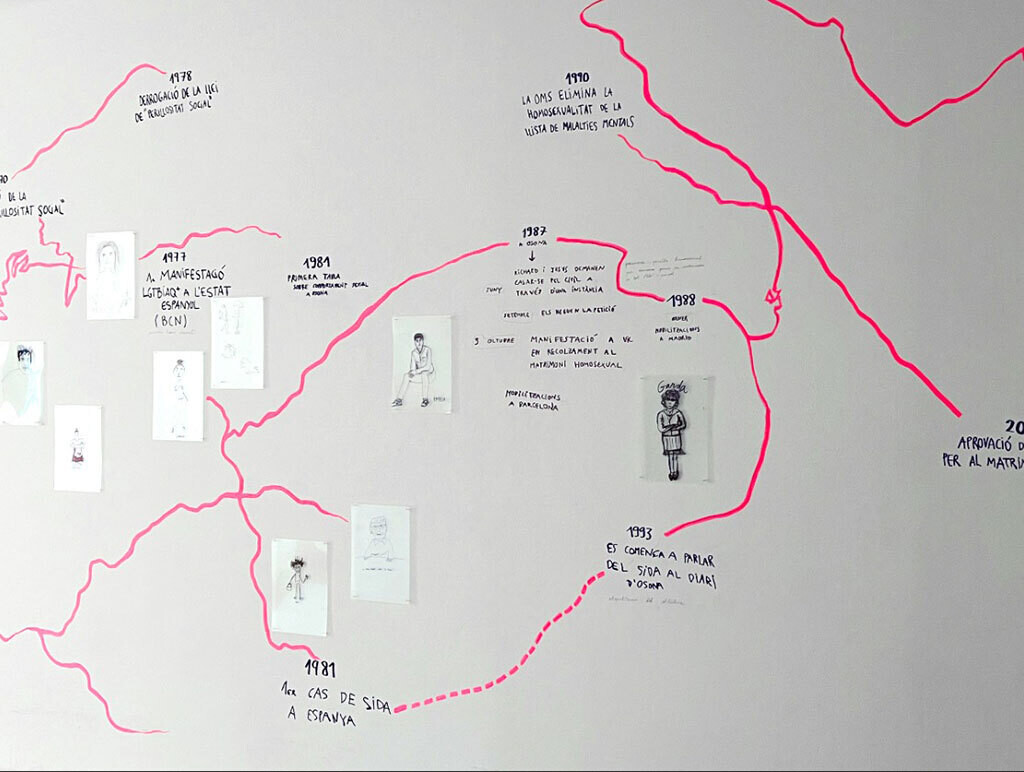 1978
DEROGACIÓ DE LA LLEI
DE "PERILLOSITAT SOCIAL"
DE LA
SOCIAL"
1977
1a MANIFESTACIÓ
LGTBIAQ+ A L'ESTAT
ESPANYOL
(BCN)
1981
PRIMERA TAULA
SOBRE COMPORTAMENT SEXUAL
A OSONA
1987
A OSONA
RICHARD I JESÚS DEMANEN
JUNY CASAR-SE PEL CIVIL A
TRAVÉS D'UNA INSTÀNCIA
SETEMBRE ELS NEGUEN LA PETICIÓ
3 OCTUBRE MANIFESTACIÓ A VIC
EN RECOLZAMENT AL
MATRIMONI HOMOSEXUAL
MOBILITZACIONS
A BARCELONA
1988
MOBILITZACIONS
A MADRID
1990
LA OMS ELIMINA LA
HOMOSEXUALITAT DE LA
LLISTA DE MALALTIES MENTALS
20
APROVACIÓ D
PER AL MATRIM
1993
ES COMENÇA A PARLAR
DEL SIDA AL DIARI
D'OSONA
1981
1er CAS DE SIDA
A ESPANYA